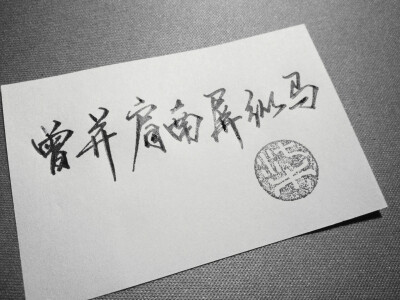 曾并肩南屏纵马